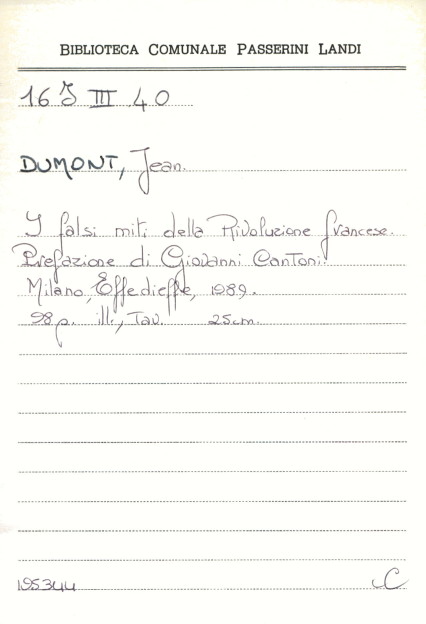 BIBLIOTECA COMUNALE PASSERINI LANDI
16 J III 40
DUMONT, Jean.
I falsi miti della Rivoluzione francese.
Prefazione di Giovanni Cantoni.
Milano, Effedieffe, 1989.
98 p. ill., Tav. 25cm.
195344 C